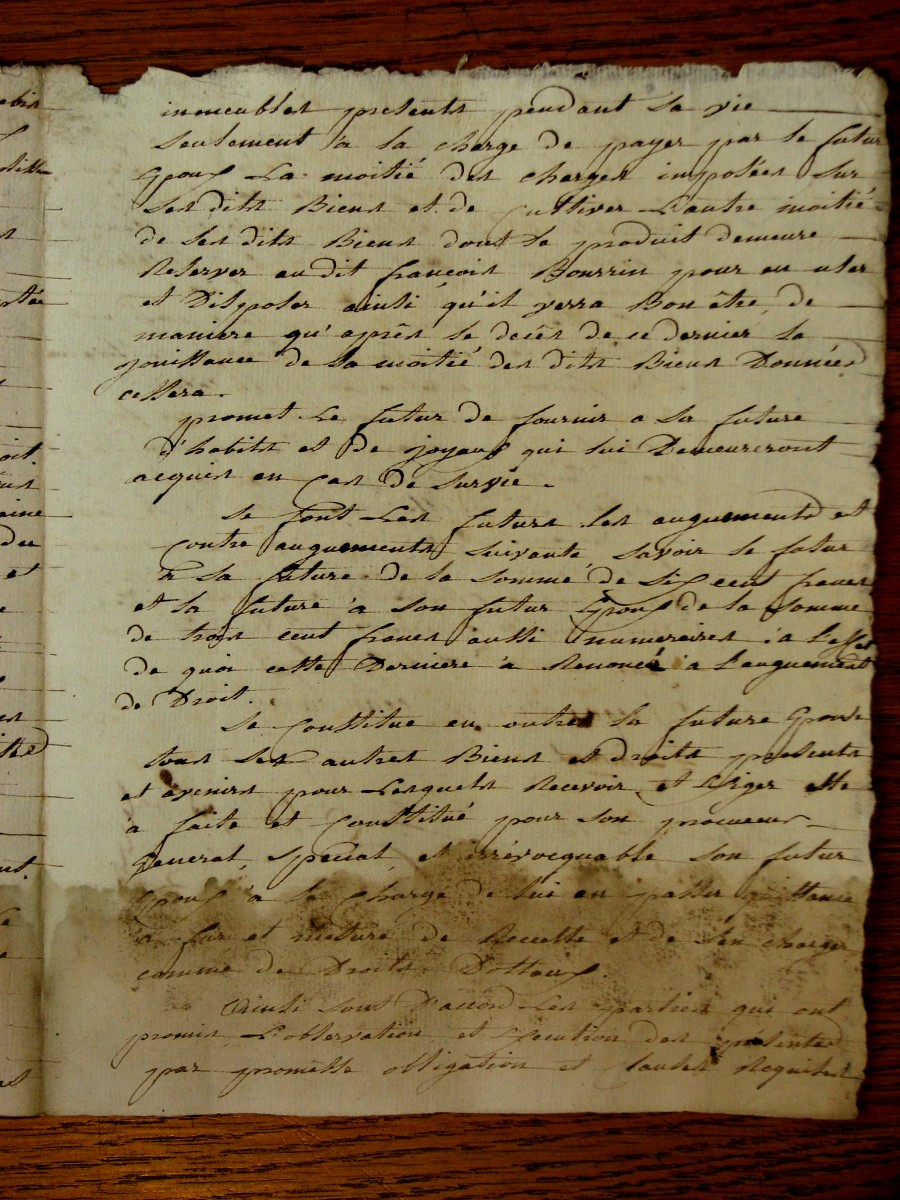 immeubles presents pendant sa vie
seulement a la charge de payer par le futur
Epoux La moitié des charges imposées sur
ses dits Biens et de Cultiver L'autre moitié
de ses dits Biens dont le produit demeure
Reserver audit françois Bourrin pour en user
et Disposer ainsi qu'il verra Bon être, de
maniere qu'après le decès de ce dernier la
jouissance de la moitié des dits Biens Donnés
cessera.
promet Le futur de fournir a sa future
d'habits et de joyaux qui lui Demeureront
acquis en Cas de survie.
se font Les futurs les auguements et
Contre auguements suivants, savoir le futur
a sa future de la somme de Six cent francs
et la future à son futur Epoux de la somme
de trois cent francs aussi numeraires à l'effet
de quoi cette Derniere à Renoncé à l'auguement
de Droit.
se Constitue en outre la future Epouse
tous ses autres Biens et droits presents
et avenirs pour Lesquels Recevoir et Exiger elle
à faite et Constitué pour son procureur
general, special, et irrévocquable son futur
Epoux à la Charge de lui en passer quittance
a fur et mesure de Reccette et de s'en charger
comme de Droits Dottaux.
Ainsi sont D'accord Les parties qui ont
promis L'observation et Execution des présentes
par promesse obligation et Clauses Requises